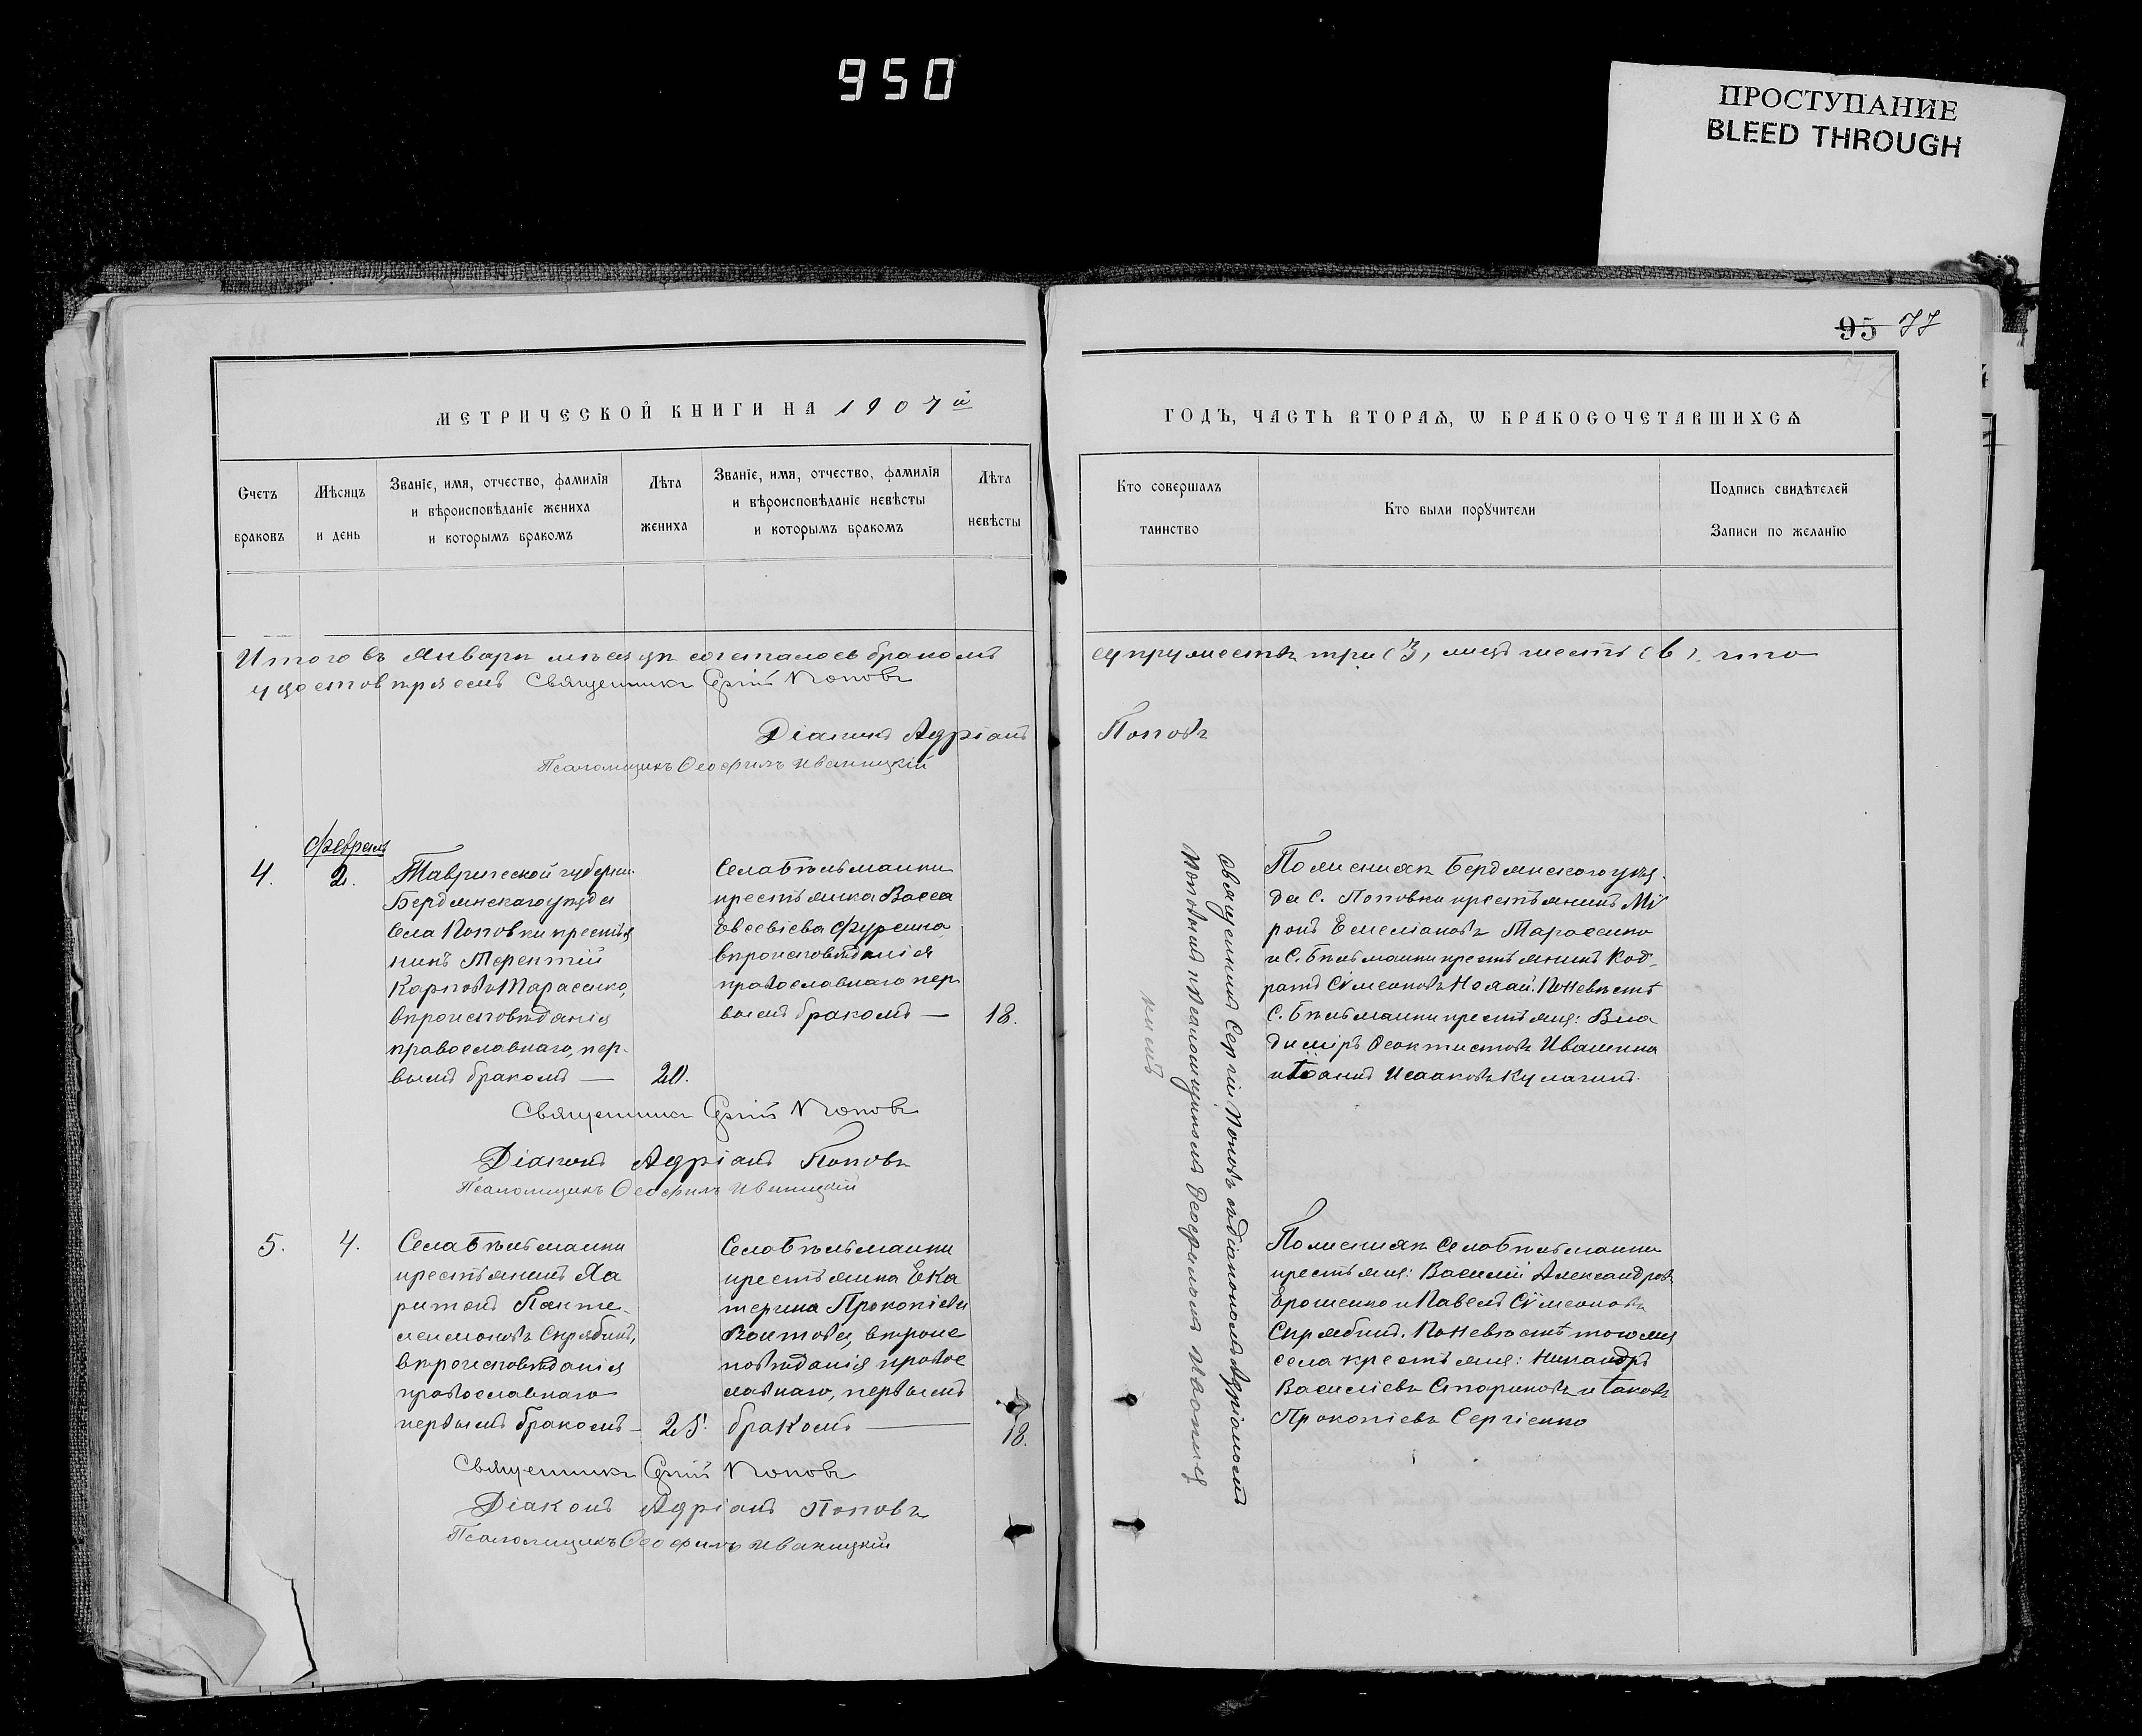 950
ПРОСТУПАНИЕ
BLEED THROUGH
95 77
МЕТРИЧЕСКОЙ КНИГИ НА 1907й
ГОДЪ, ЧАСТЬ ВТОРАѦ, Ѡ БРАКОСОЧЕТАВШИХСѦ
Счетъ браковъ
Мѣсяцъ и день
Званіе, имя, отчество, фамилія
и вѣроисповѣданіе жениха
и которымъ бракомъ
Лѣта жениха
Званіе, имя, отчество, фамилія
и вѣроисповѣданіе невѣсты
и которымъ бракомъ
Лѣта невѣсты
Кто совершалъ таинство
Кто были порꙋчители
Подпись свидѣтелей
Записи по желанію
Итого въ Январѣ мѣсяцѣ сочеталось бракомъ
супружествъ три (3), лицъ шесть (6), что
удостовѣряемъ Священникъ Сергій Поповъ
Діаконъ Адріанъ Поповъ
Псаломщикъ Ѳеофилъ Иваницкій
Февраль
4.
2.
Таврической губерніи
Бердянскаго уѣзда
села Поповки крестья
нинъ Терентій
Карповъ Тарасенко,
вѣроисповѣданія
православнаго, пер-
вымъ бракомъ — 20.
Села Бѣльманки
крестьянка Васса
Евсевіева Фурсина
вѣроисповѣданія
православнаго пер
вымъ бракомъ — 18.
Священникъ Сергій Поповъ съ діакономъ Адріаномъ
Поповымъ и псаломщикомъ Ѳеофиломъ
По женихѣ Бердянскаго уѣз-
да с. Поповки крестьянинъ Мѵ
ронъ Емеліановъ Тарасенко
и с. Бѣльманки крестьянинъ Код-
ратъ Сѵмеоновъ По невѣстѣ
с. Бѣльманки крестьяне: Вла
диміръ Ѳеоктистовъ Ивашина
и Іоаннъ Исааковъ Кулагинъ.
Священникъ Сергій Поповъ
Діаконъ Адріанъ Поповъ
Псаломщикъ Ѳеофилъ Иваницкій
5.
4.
Села Бѣльманки
крестьянинъ Ха
ритонъ Панте
леимоновъ Скрябинъ,
вѣроисповѣданія
православнаго
первымъ бракомъ — 25.
Села Бѣльманки
крестьянка Ека
терина Прокопіева
вѣроис
повѣданія правос
лавнаго, первымъ
бракомъ — 18.
По женихѣ села Бѣльманки
крестьяне: Василій Александровъ
Ерошенко и Павелъ Сѵмеоновъ
Скрябинъ. По невѣстѣ того же
села крестьяне: Никандръ
Василіевъ Стариковъ и Іаковъ
Прокопіевъ Сергіенко
Священникъ Сергій Поповъ
Діаконъ Адріанъ Поповъ
Псаломщикъ Ѳеофилъ Иваницкій